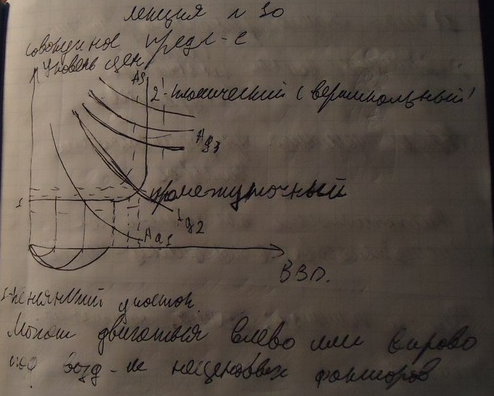 лекция N 30
совокупное предл-е
Уровень цен
AS
2-классический (вертикальный)
Ag3
промежуточный
Ag2
Ag1
1
ВВП.
1-кенсианский участок.
Могат двигаться влево или вправо
под возд-м неценовых факторов